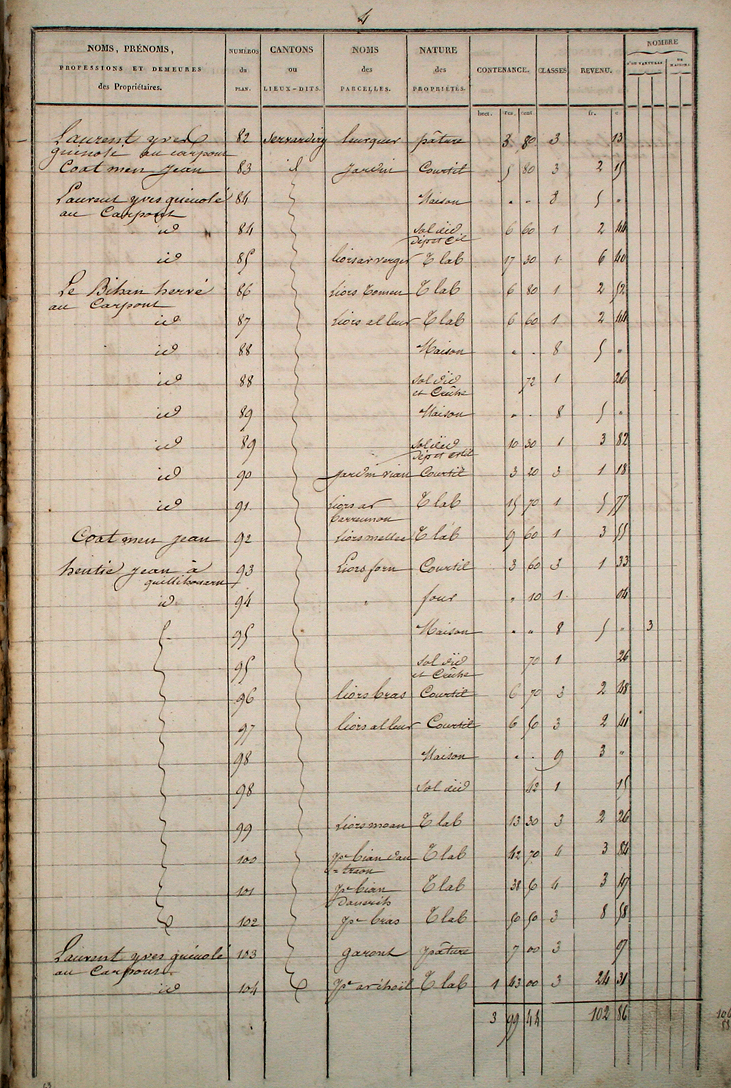 4
NOMS, PRÉNOMS, PROFESSIONS ET DEMEURES des Propriétaires. NUMÉROS du PLAN. CANTONS ou LIEUX-DITS. NOMS des PARCELLES. NATURE des PROPRIÉTÉS. CONTENANCE. CLASSES REVENU. NOMBRE
hect. cent. fr.
Laurent yves 82 leurguer pâture 3 80 3 13
guénolé au carpont
Coat meu jean 83 id jardin Courtil 5 80 3 2 15
Laurent yves guénolé 84 Maison " " 8 5 "
au Carpont
id 84 Sol düd 6 60 1 2 44
id 85 liorsar verger T lab 17 30 1 6 40
Le Bihan hervé 86 Liors T lab 6 80 1 2 52
au Carpont
id 87 Liors al leur T lab 6 60 1 2 44
id 88 Maison " " 8 5 "
id 88 Sol düd 72 1 26
et Crêche
id 89 Maison " " 8 5 "
id 89 Sol düd 10 30 1 3 82
id 90 jardin vian Courtil 3 20 3 1 18
id 91 Liors ar T lab 15 70 1 5 77
Coat meu jean 92 T lab 9 60 1 3 55
jean à 93 Liors forn Courtil 3 60 3 1 33
id 94 " four " 10 1 04
95 Maison " " 8 5 " 3
95 Sol düd 70 1 26
et Crêche
96 liors bras Courtil 6 70 3 2 48
97 liors al leur Courtil 6 50 3 2 41
98 Maison " " 9 3 "
98 Sol düd 42 1 15
99 Liors moan T lab 13 30 3 2 26
100 pr bian T lab 42 70 4 3 84
101 pr bian T lab 38 56 4 3 47
102 pr bras T lab 50 50 3 8 58
Laurent yves guénolé 103 garont pâture 7 00 3 97
au Carpont
id 104 T lab 1 43 00 3 24 31
3 99 44 102 86